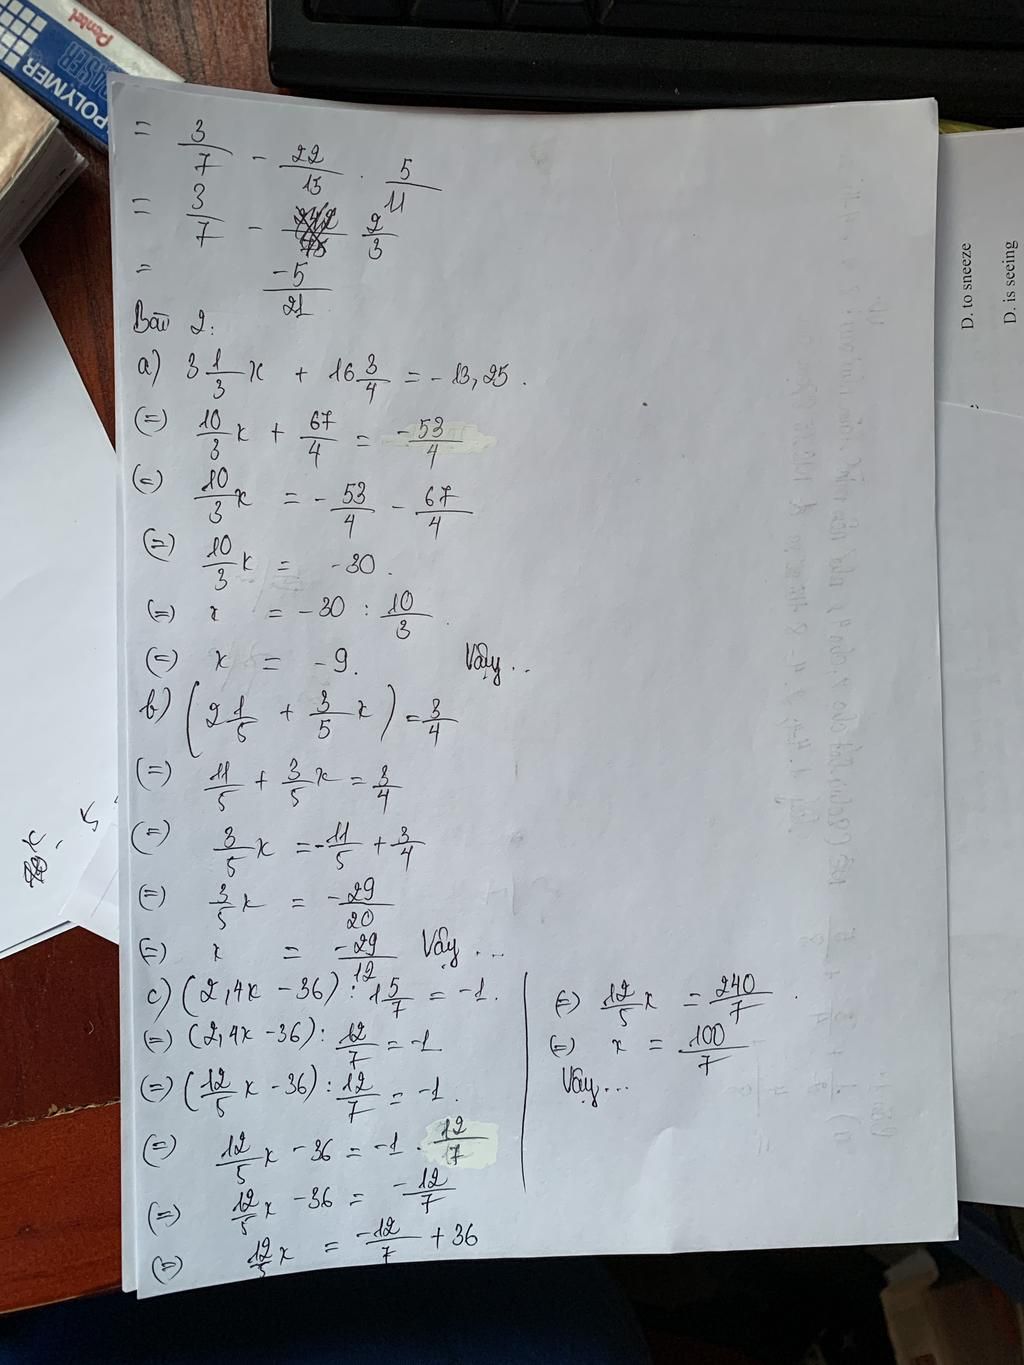 Pentel
POLYMER
ERASER
= 3/7 - 22/15 . 5/11
= 3/7 - 2/3
= -5/21
Bài 2:
a) 3 1/3 x + 16 3/4 = -13,25.
(=) 10/3 x + 67/4 = -53/4
(=) 10/3 x = -53/4 - 67/4
(=) 10/3 x = -30.
(=) x = -30 : 10/3.
(=) x = -9. Vậy..
b) (2 1/5 + 3/5 x) = 3/4
(=) 11/5 + 3/5 x = 3/4
(=) 3/5 x = -11/5 + 3/4
(=) 3/5 x = -29/20
(=) x = -29/12 Vậy ...
c) (2,4x - 36) : 1 5/7 = -1.
(=) (2,4x - 36) : 12/7 = -1
(=) (12/5 x - 36) : 12/7 = -1.
(=) 12/5 x - 36 = -1 . 12/7
(=) 12/5 x - 36 = -12/7
(=) 12/5 x = -12/7 + 36
(=) 12/5 x = 240/7.
(=) x = 100/7
Vậy...
D. to sneeze
D. is seeing